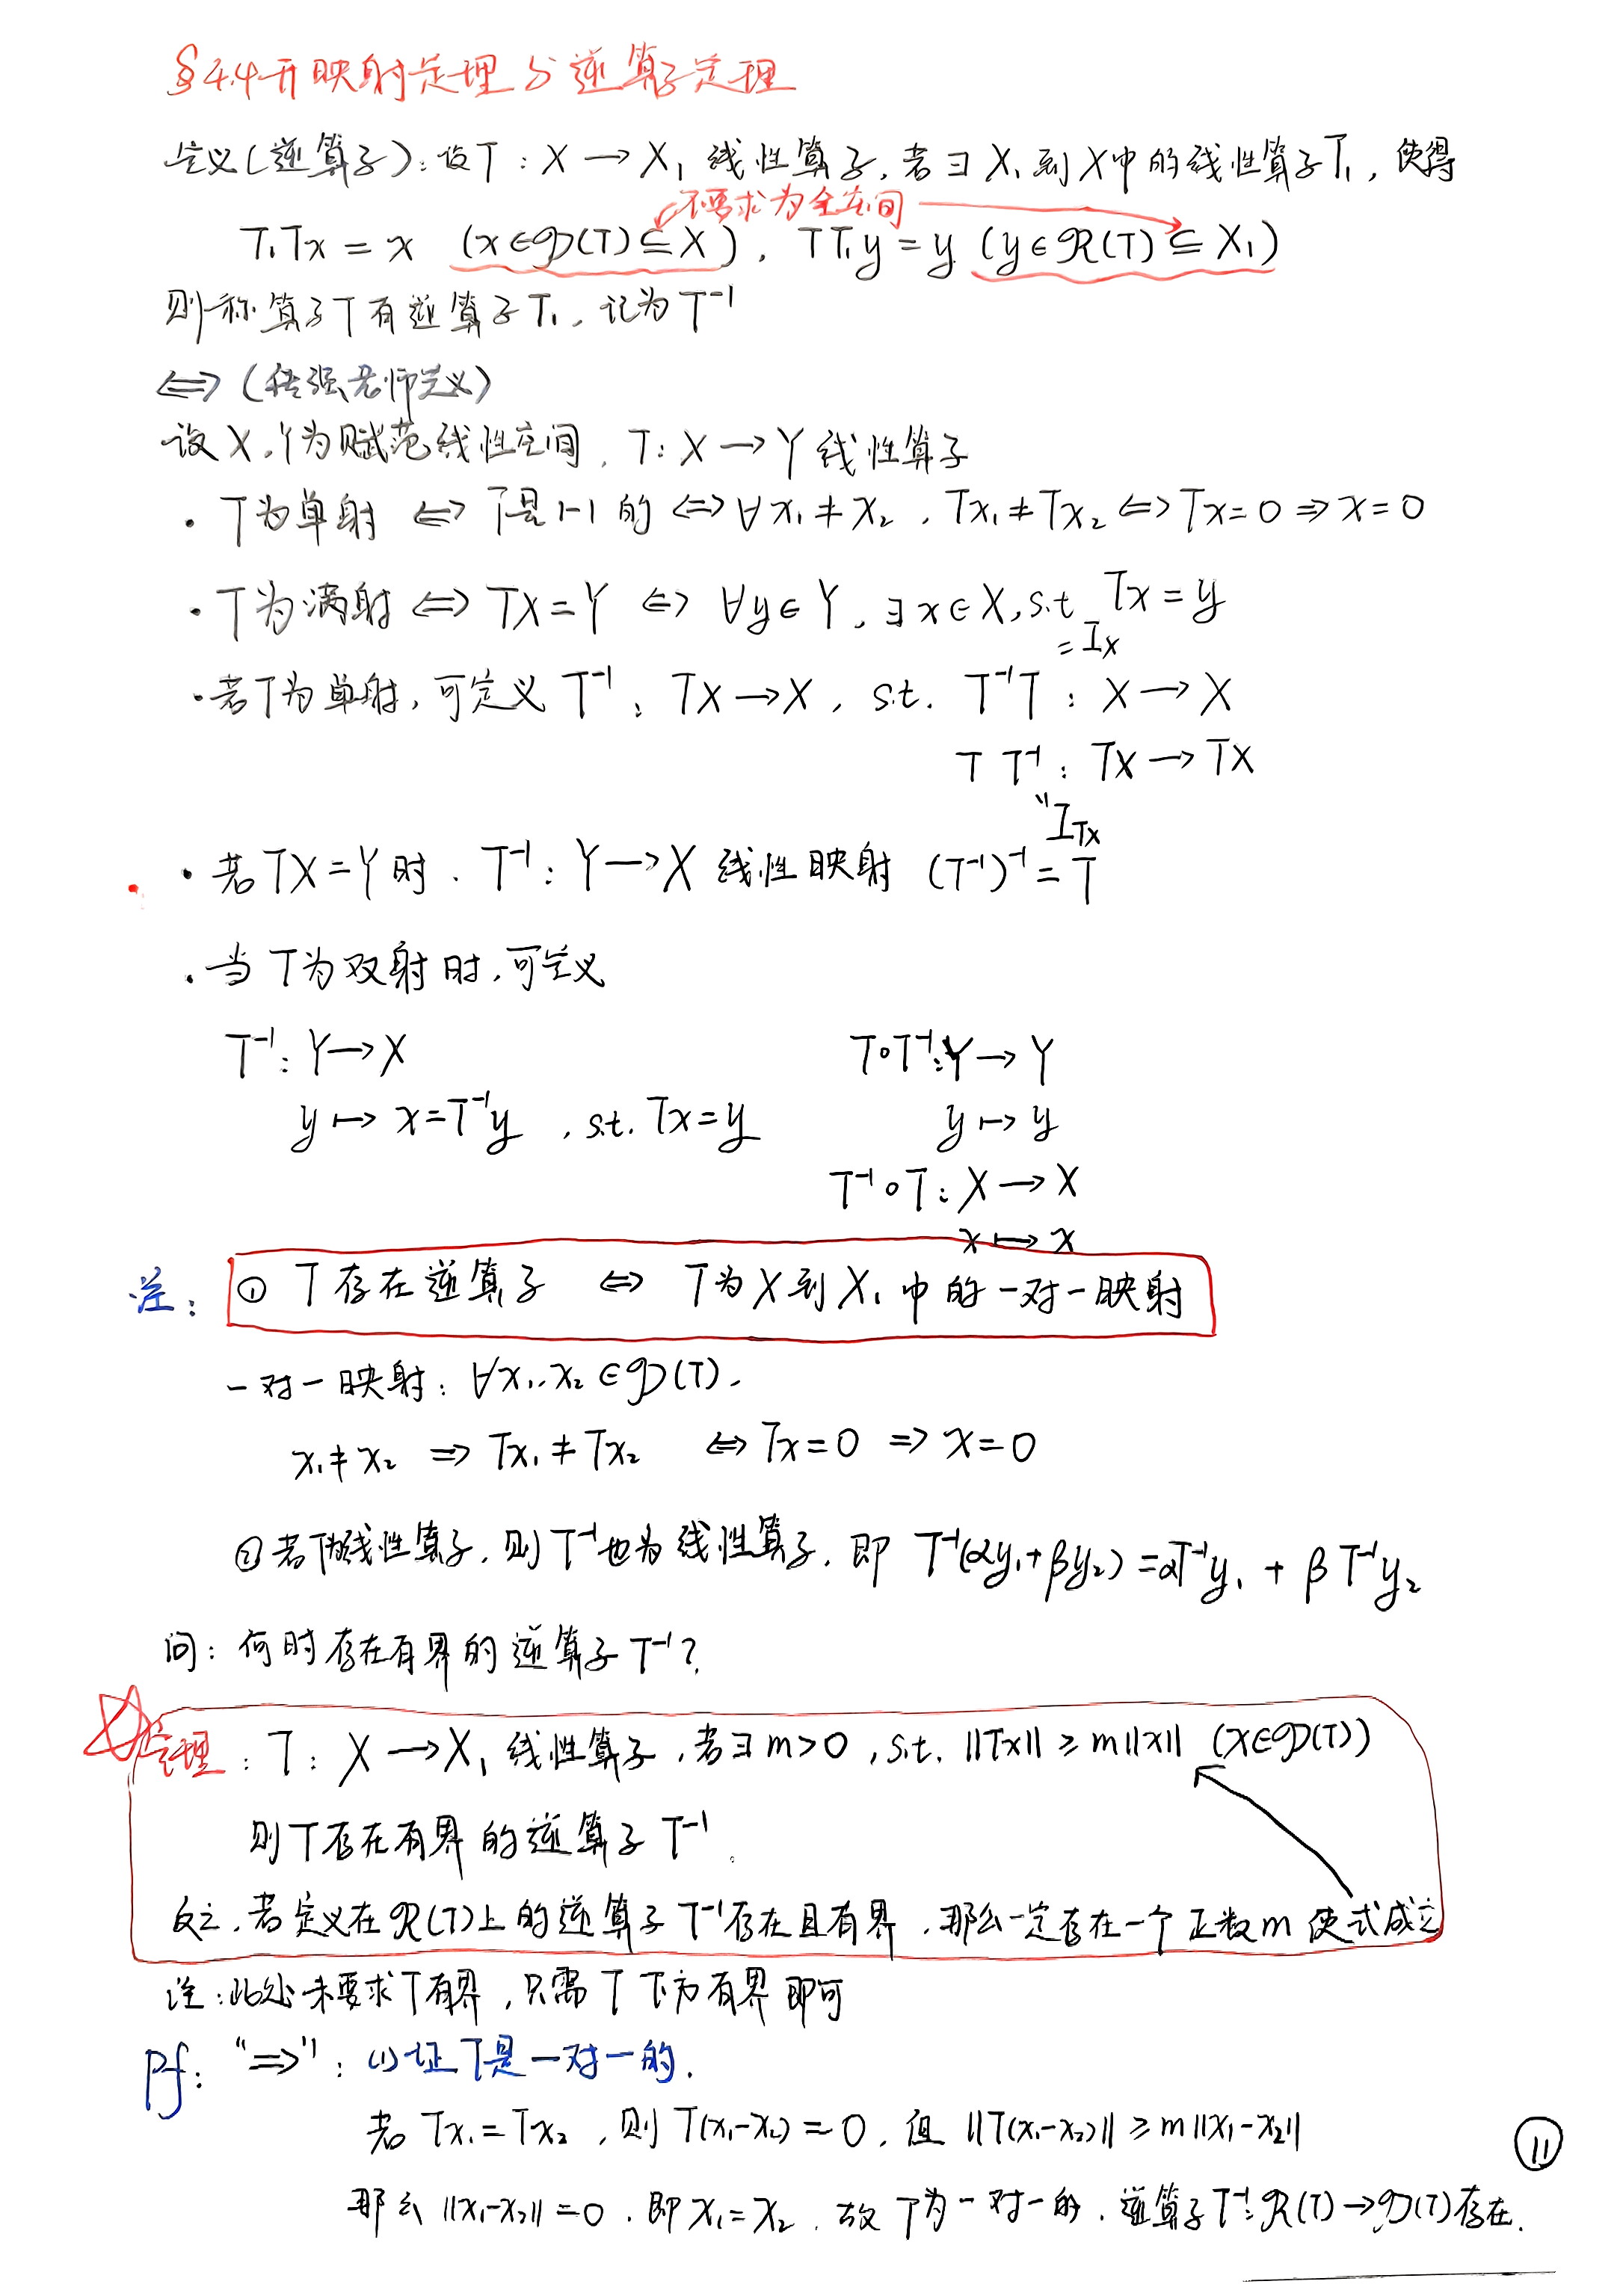 §4.4 开映射定理与逆算子定理
定义(逆算子):设T:X→X₁ 线性算子,若∃X₁到X中的线性算子T₁,使得
不要求为全空间
T₁Tx=x (x∈𝒟(T)⊆X), TT₁y=y (y∈ℛ(T)⊆X₁)
则称算子T有逆算子T₁,记为T⁻¹
⇔(强老师定义)
设X,Y为赋范线性空间,T:X→Y线性算子
·T为单射⇔T是1-1的⇔∀x₁≠x₂,Tx₁≠Tx₂⇔Tx=0⇒x=0
·T为满射⇔TX=Y⇔∀y∈Y,∃x∈X,s.t Tx=y
=I_X
·若T为单射,可定义T⁻¹:TX→X, s.t. T⁻¹T:X→X
T T⁻¹:TX→TX
"I_TX
·若TX=Y时.T⁻¹:Y→X线性映射 (T⁻¹)⁻¹=T
·当T为双射时,可定义
T⁻¹:Y→X T∘T⁻¹:Y→Y
y↦x=T⁻¹y ,s.t. Tx=y y↦y
T⁻¹∘T:X→X
x↦x
注: ① T存在逆算子 ⇔ T为X到X₁中的一对一映射
一对一映射:∀x₁,x₂∈𝒟(T),
x₁≠x₂ ⇒ Tx₁≠Tx₂ ⇔Tx=0 ⇒x=0
②若T为线性算子,则T⁻¹也为线性算子,即 T⁻¹(αy₁+βy₂)=αT⁻¹y₁+βT⁻¹y₂
问:何时存在有界的逆算子T⁻¹?
定理:T:X→X₁线性算子,若∃m>0,s.t. ||Tx||≥m||x|| (x∈𝒟(T))
则T存在有界的逆算子T⁻¹.
反之,若定义在ℛ(T)上的逆算子T⁻¹存在且有界,那么一定存在一个正数m使式成立
注:此处未要求T有界,只需T下方有界即可
pf:"⇒":(1)证T是一对一的.
若Tx₁=Tx₂,则T(x₁-x₂)=0,但||T(x₁-x₂)||≥m||x₁-x₂||
那么||x₁-x₂||=0.即x₁=x₂.故T为一对一的.逆算子T⁻¹:ℛ(T)→𝒟(T)存在.
11